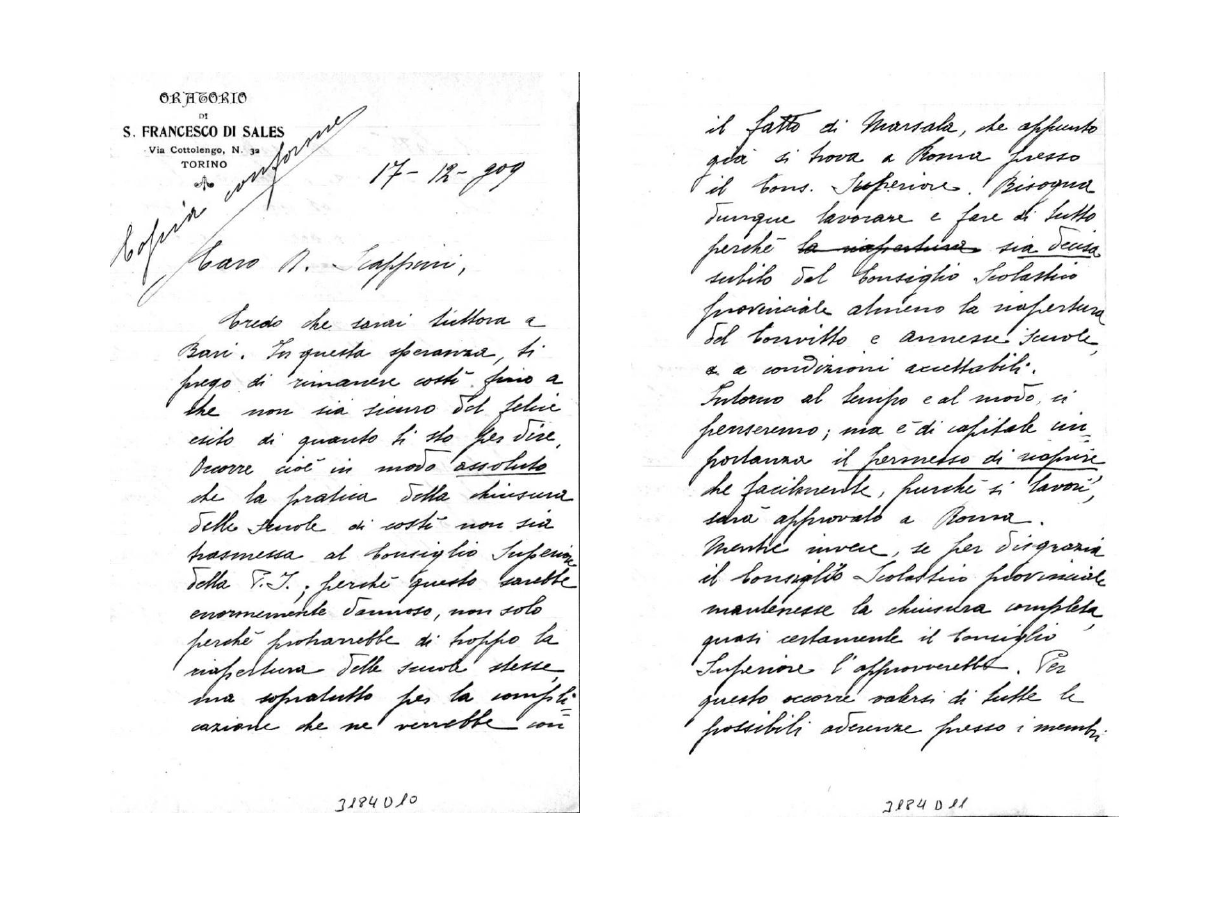 ORATORIO
DI
S. FRANCESCO DI SALES
Via Cottolengo, N. 32
TORINO
Copia conforme
17-12-909
Caro D. Scappini,
Credo che sarai tuttora a
Bari. In questa speranza, ti
prego di rimanere costì fino a
che non sia sicuro del felice
esito di quanto ti sto per dire.
Occorre cioè in modo assoluto
che la pratica della chiusura
delle scuole di costì non sia
trasmessa al Consiglio Superiore
della P.I.; perchè questo sarebbe
enormemente dannoso, non solo
perchè protrarrebbe di troppo la
riapertura delle scuole stesse,
ma sopratutto per la compli=
cazione che ne verrebbe con
3184 D 10
il fatto di Marsala, che appunto
già si trova a Roma presso
il Cons. Superiore. Bisogna
dunque lavorare e fare di tutto
perchè la riapertura sia decisa
subito dal Consiglio Scolastico
provinciale almeno la riapertura
del Convitto e annesse scuole,
a condizioni accettabili.
Intorno al tempo e al modo, ci
penseremo; ma è di capitale im=
portanza il permesso di riaprire
che facilmente, purchè si lavori,
sarà approvato a Roma.
Mentre invece, se per disgrazia
il Consiglio Scolastico provinciale
mantenesse la chiusura completa,
quasi certamente il Consiglio
Superiore l'approverebbe. Per
questo occorre valersi di tutte le
possibili aderenze presso i membri
3184 D 11